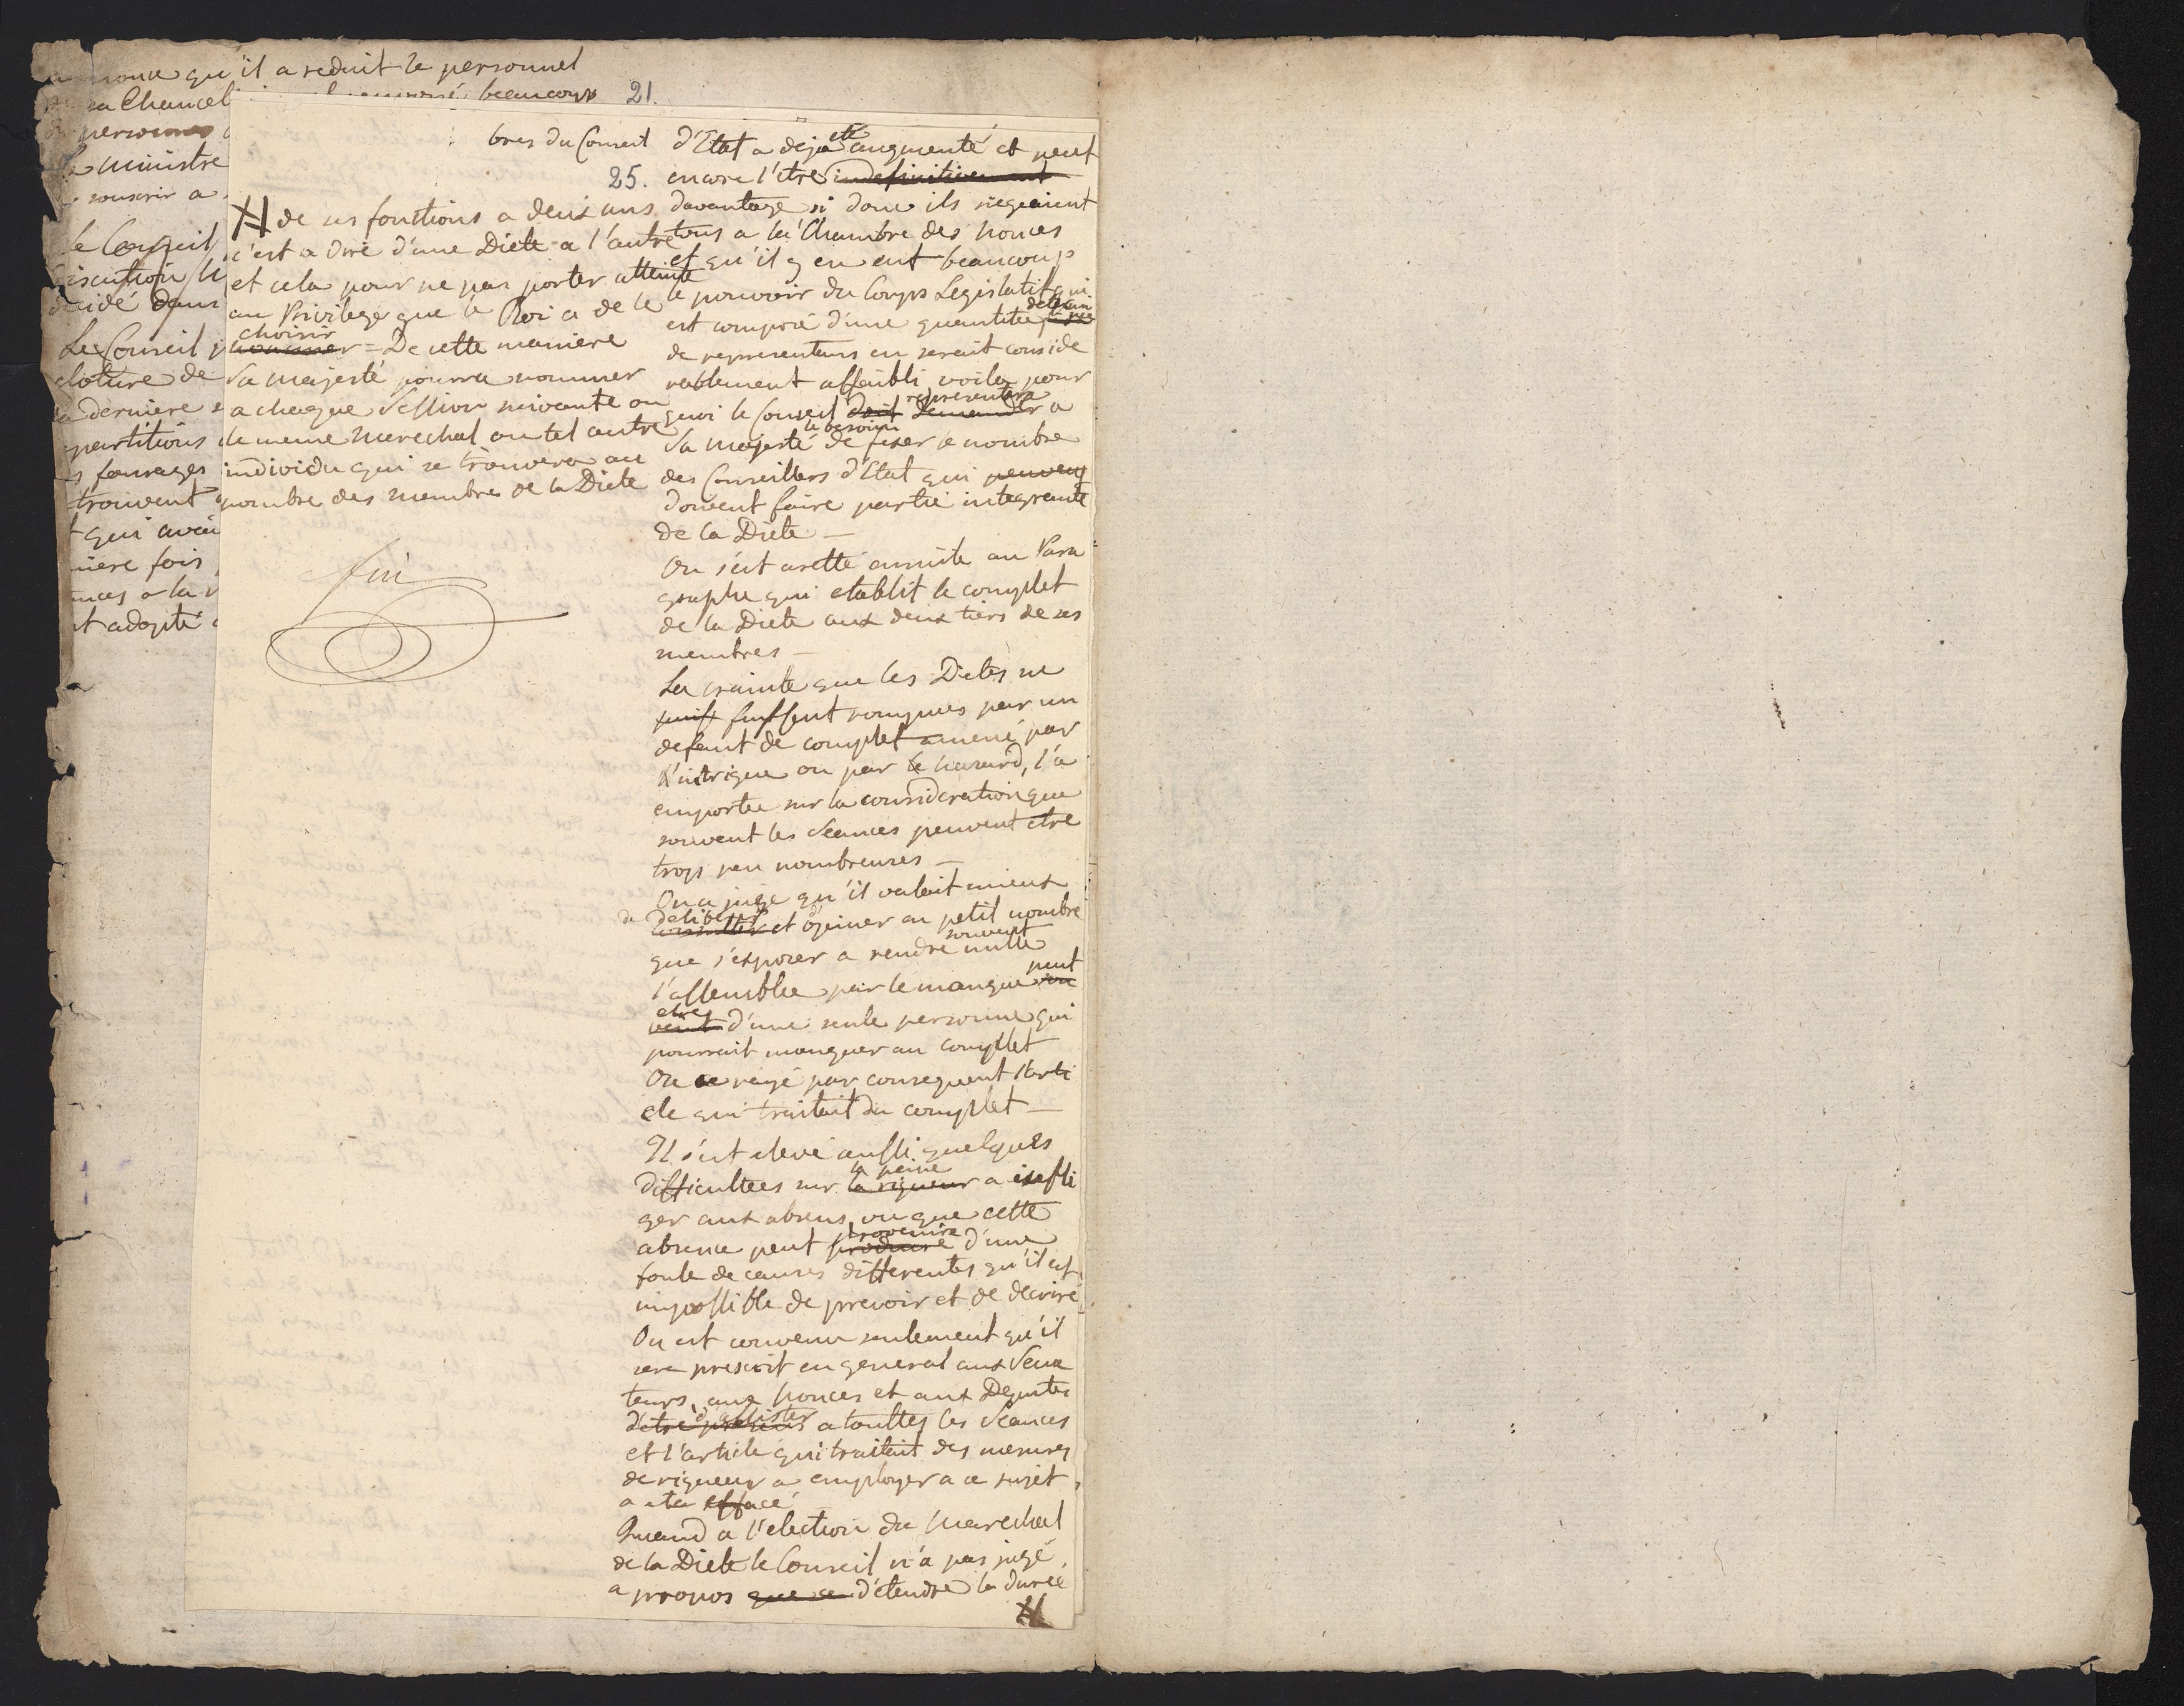 nonce qu'il a reduit le personnel
sa Chancel beaucoup 21.
personnes
le ministre
souscrir a
le Conseil
discution
decidé dans
Le Conseil
cloture de
la derniere
partitions
fourages
trouvent
qui avai
niere fois
nces a la
nt adopté
bres du Conseil d'Etat a deja eté augmenté et peut
25. encore l'etre indefinitivement
davantage si donc ils siegeaient
tous a la Chambre des nonces
et qu'il y en eut beaucoup
le pouvoir du Corps Legislatif qui
est composé d'une quantitée
de representans en serait conside
rablement affaibli voila pour
quoi le Conseil doit demander representera a
Sa Majesté le besoin de fixer le nombre
des Conseillers d'Etat qui peuvent
doivent faire partie integrante
de la Diete —
On s'est aretté ensuite au Para
graphe qui etablit le complet
de la Diete aux deux tiers de ses
membres —
La crainte que les Dietes ne
fussent rompues par un
defaut de complet amené par
l'intrigue ou par le hazard, l'a
emportée sur la consideration que
souvent les séances peuvent etre
trop peu nombreuses —
On a jugé qu'il valait mieux
de deliberer consulter et opiner en petit nombre
que s'exposer a rendre souvent nulle
l'assemblée par le manque peut
etre d'une seule personne qui
pourrait manquer au complet
On a rayé par consequent l'arti
cle qui traitait du complet —
Il s'est elevé aussi quelques
difficultees sur la peine la rigueur a infli
ger aux absens, vu que cette
absence peut provenir produire d'une
foule de causes differentes qu'il est
impossible de prevoir et de decrire
On est convenu seulement qu'il
sera prescrit en general aux Sena
teurs, aux nonces et aux Deputés
d'etre présens d'assister a touttes les séances
et l'article qui traitait des mesures
de rigueur a employer a ce sujet
a eté effacé
Quand a l'election du Marechal
de la Diete le Conseil n'a pas jugé
a propos que ce d'etendre la durée
#
# de ses fonctions a deux ans
c'est a dire d'une Diete a l'autre
et cela pour ne pas porter atteinte
au Privilege que le Roi a de le
choisir nommer = De cette maniere
Sa Majesté pourra nommer
a chaque Session suivante ou
le meme Marechal ou tel autre
individu qui se trouvera au
nombre des membres de la Diete
fin